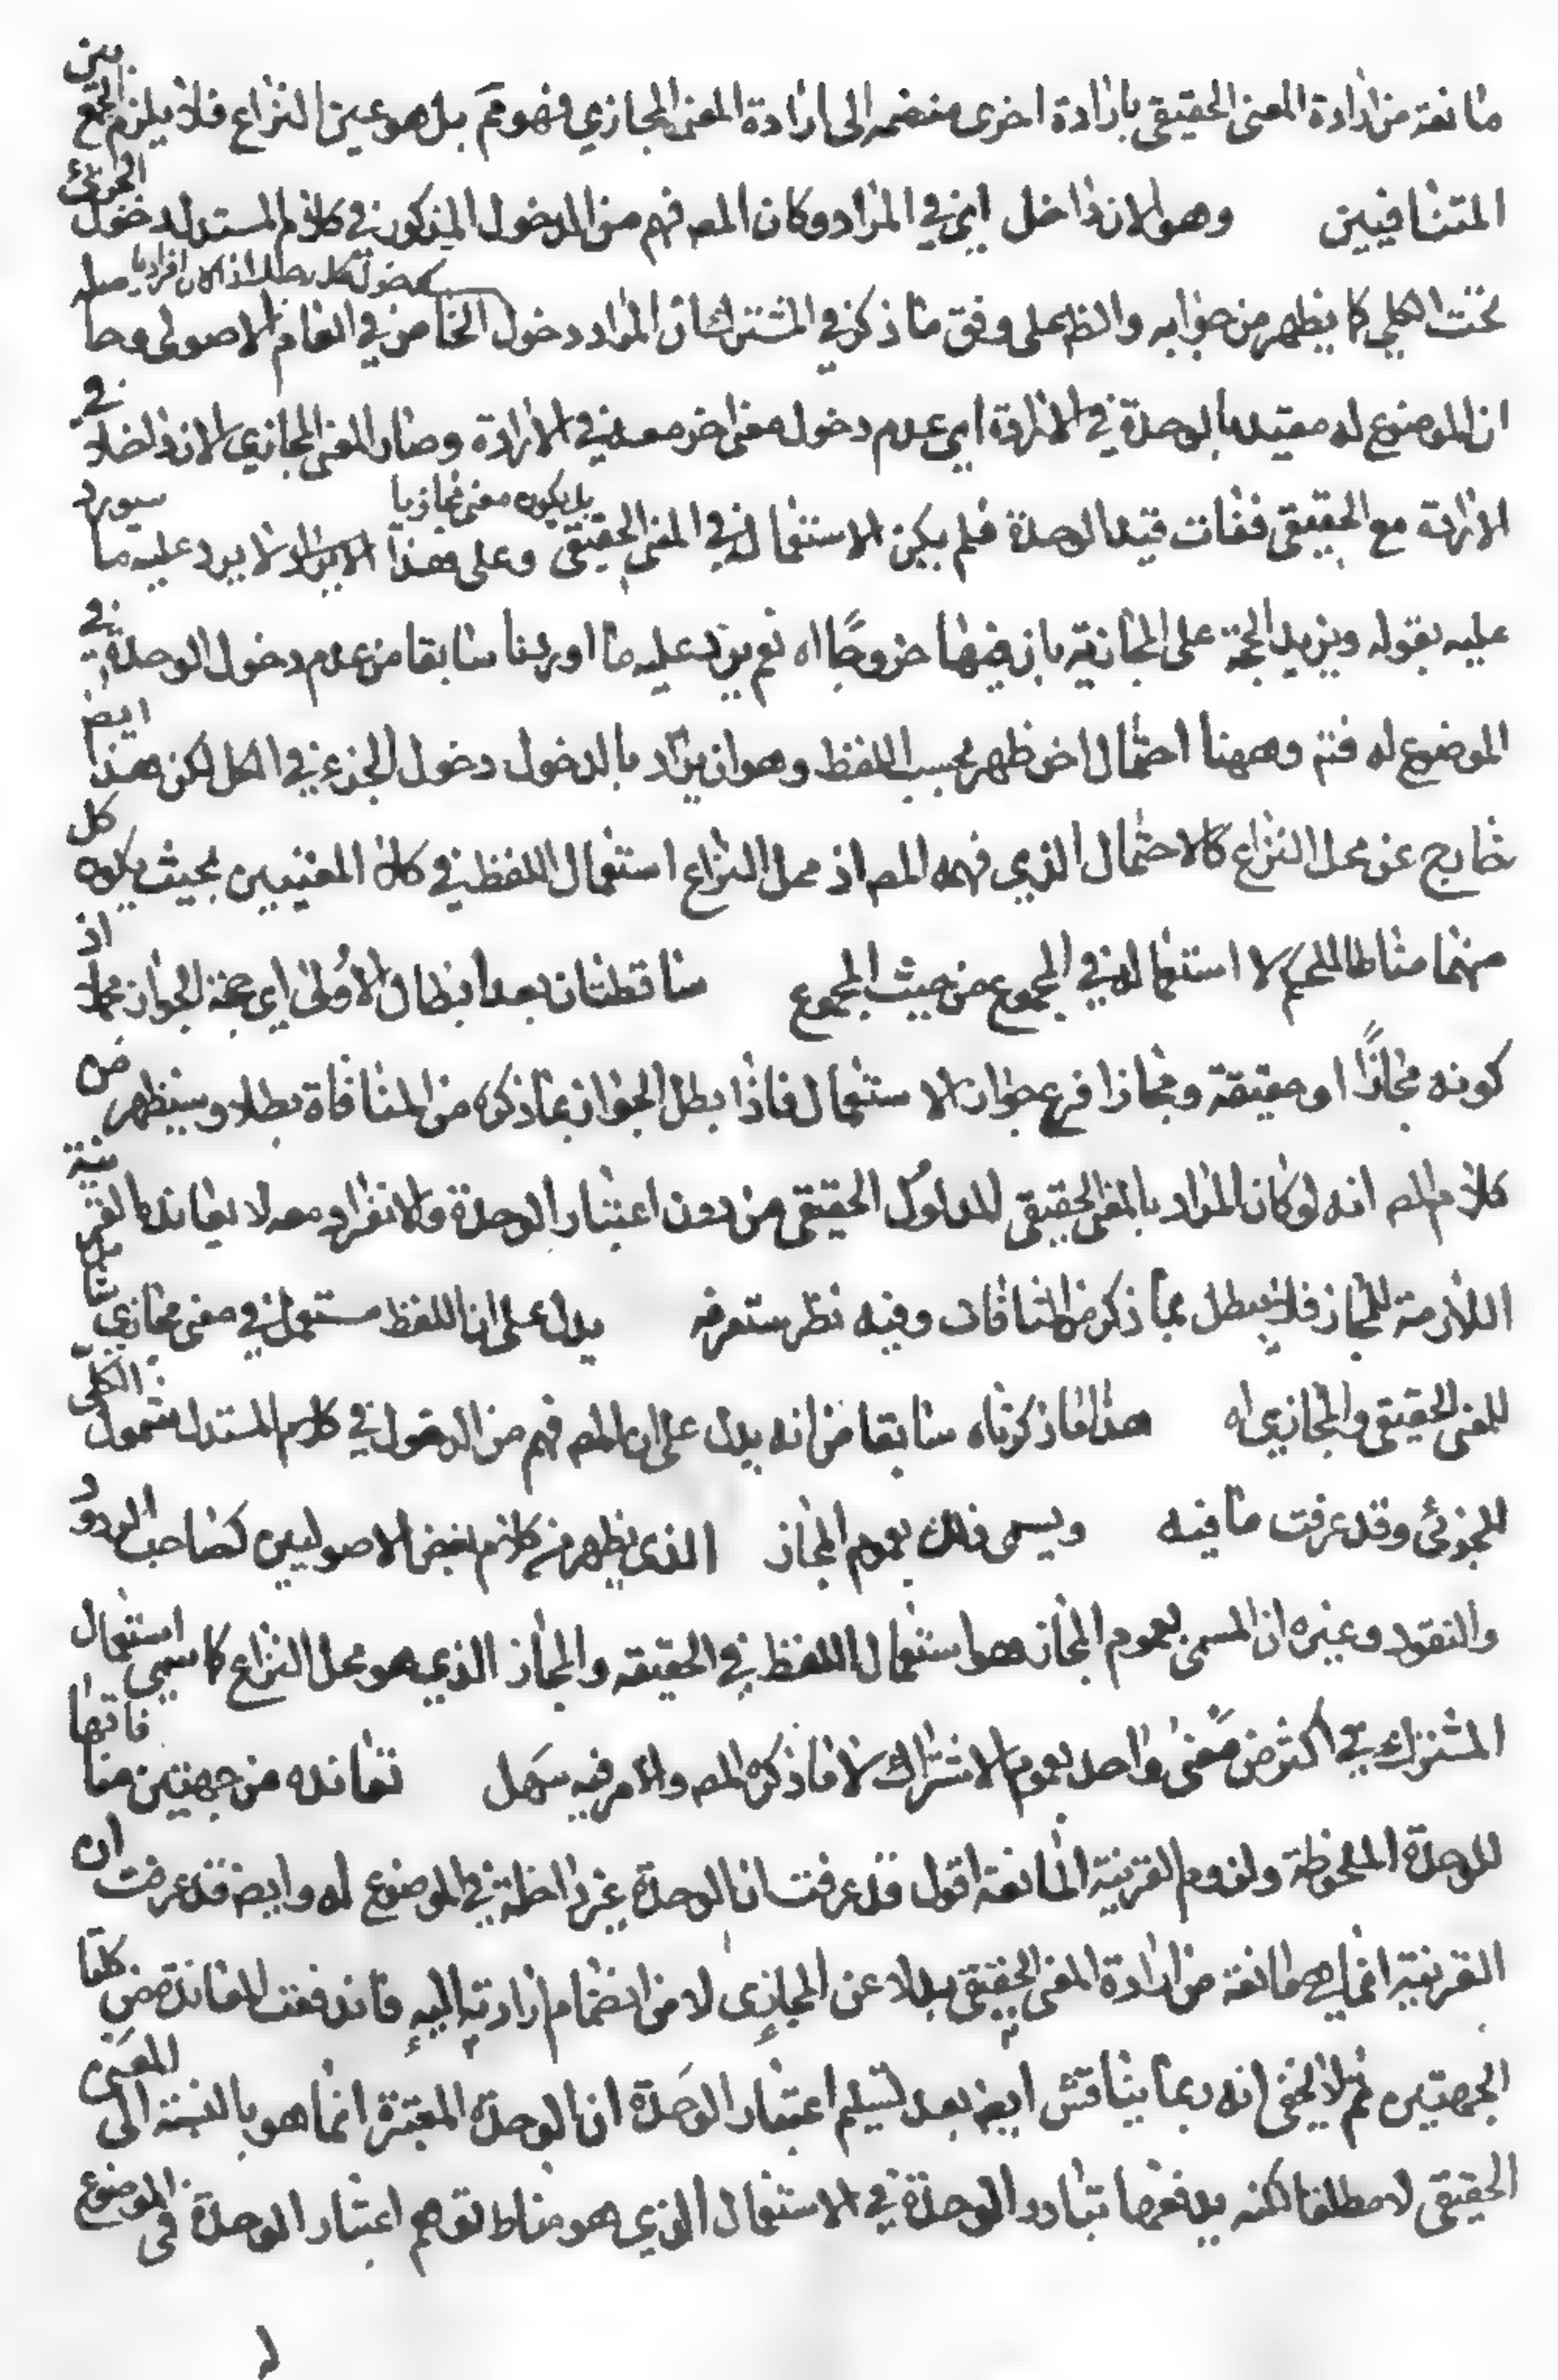 مانعة من ارادة المعنى الحقيقي بارادة اخرى منضمه الى ارادة المعنى المجازي فهو مم بل هو عين النزاع فلا يلزم الجمع بين
المتنافيين وهو الان داخل ايض في المراد وكان المصه فهم من الدخول المذكور في كلام المستدل دخول الجزئي
تحت الكلي كما يظهر من جوابه والظ على وفق ما ذكر في المشترك ان المراد دخول الخاص في العام الاصولى وحاصله
ان الموضوع له مقيد بالوحدة في الارادة اي عدم دخول معنى اخر معه في الارادة وصار المعنى المجازي الان داخلا في
الارادة مع الحقيقي ففات قيد الوحدة فلم يكن الاستعمال في المعنى الحقيقي بل يكون معنى مجازيا وعلى هذا الايراد لا يرد عليه ما سيورد
عليه بقوله ويزيد الحجة على المجازية بان فيها خروجًا اه نعم يرد عليه ما اوردنا سابقا من عدم دخول الوحدة في
الموضوع له فتم وههنا احتمال اخر ظهر بحسب اللفظ وهو ان يراد بالدخول دخول الجزء في الكل لكن هذا ايضا
خارج عن محل النزاع كالاحتمال الذي فهمه المصه اذ محل النزاع استعمال اللفظ في كلا المعنيين بحيث يكون كل
منهما مناطا للحكم لا استعماله في المجموع من حيث المجموع ساقطتان بعد ابطال الاولى اي حجة الجواز اذ
كونه مجازًا او حقيقة ومجازا فرع جواز الاستعمال فاذا بطل الجواز بما ذكره من المنافاة بطلا وسيظهر من
كلام المصه انه لو كان المراد بالمعنى الحقيقي المدلول الحقيقي من دون اعتبار الوحدة والانفراد معه لا يعانده القرينة
اللازمة للمجاز فلا يبطل بما ذكر من المنافات وفيه نظر ستعرفه يدل على ان اللفظ مستعمل في معنى مجازي شامل
للمعنى الحقيقي والمجازي اه هذا ما ذكرناه سابقا من انه يدل على ان المصه فهم من الدخول في كلام المستدل شمول الكلي
للجزئي وقد عرفت ما فيه ويسمى ذلك بعموم المجاز الذي يظهر من كلام بعض الاصوليين كصاحب الردود
والنقود وغيره ان المسمى بعموم المجاز هو استعمال اللفظ في الحقيقه والمجاز الذي هو محل النزاع كما سمى استعمال
المشترك في اكثر من معنى واحد بعموم الاشتراك لا ما ذكره المصه والامر فيه سهل تعانده من جهتين منافاتها
للوحدة الملحوظة ولزوم القرينة المانعة اقول قد عرفت ان الوحدة غير داخلة في الموضوع له وايضه قد عرفت ان
القرينة انما هي مانعة من ارادة المعنى الحقيقي بدلا عن المجازي لا من انضمام ارادته اليه فاندفعت المعاندة من كلتا
الجهتين ثم لا يخفى انه ربما يناقش ايضه بعد تسليم اعتبار الوحدة ان الوحدة المعتبرة انما هو بالنسبة الى المعنى
الحقيقي لا مطلقا لكنه يدفعها تبادر الوحدة في الاستعمال الذي هو مناط توهم اعتبار الوحدة في الموضوع